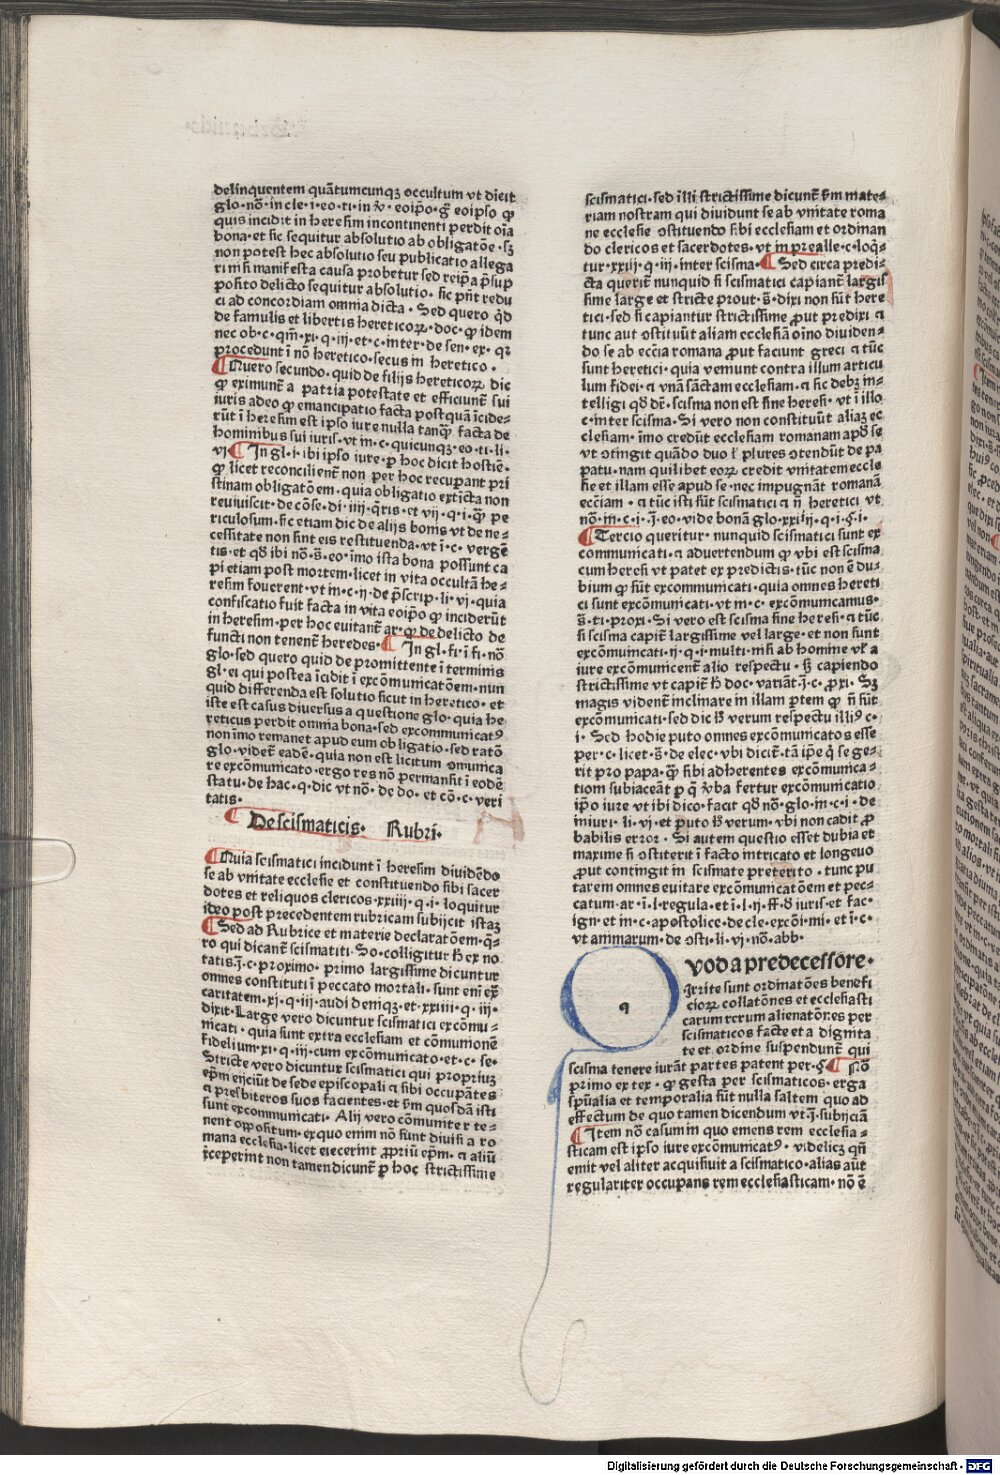 delinquentem quãtumcunqꝫ occultum vt dicit
glo·nõ·in cle·i·eo·ti·in ꝟ·eoip̃o·g̃ eoipso ꝙ
quis incidit in heresim incontinenti perdit oĩa
bona·et sic sequitur absolutio ab obligatõe·sꝫ
non potest hec absolutio seu publicatio allega
ri nisi manifesta causa probetur sed reip̃a p̃sup
posito delicto sequitur absolutio· sic pñt redu
ci ad concordiam omnia dicta· Sed quero qd̃
de famulis et libertis hereticoꝝ·doc·ꝙ idem
nec ob·c·qm̃·xi·q·iij·et·c·inter·de sen·ex·qr
procedunt ĩ nõ heretico·secus in heretico·
¶Quero secundo·quid de filijs hereticoꝝ dic
ꝙ eximunt̃ a patria potestate et efficiunt̃ sui
iuris adeo ꝙ emancipatio facta postquã ĩcide-
rũt ĩ heresim est ipso iure nulla tanqꝫ facta de
hominibus sui iuris·vt in·c·quicunqꝫ·eo·ti·li·
vj ¶In gl·i·ibi ipso iure·ꝑ hoc dicit hostiẽ·
ꝙ licet reconcilient̃ non per hoc recuꝑant pri
stinam obligatõem·quia obligatio extĩcta non
reuiuiscit·de cõse·di·iiij·q̃ris·et vij·q·i·ꝙ̃ pe
riculosum·sic etiam dic de alijs bonis vt de ne-
cessitate non sint eis restituenda·vt ĩ·c·vergẽ
tis·et qd̃ ibi nõ·s̃·eo·ĩmo ista bona possunt ca
pi etiam post mortem·licet in vita occultã he-
resim fouerent·vt in·c·ij·de p̃scrip·li·vj·quia
confiscatio fuit facta in vita eoip̃o ꝙ inciderũt
in heresim·per hoc euitant̃ ar·qr de delicto de
functi non tenent̃ heredes· ¶In gl·fi·ĩ fi·nõ
glo·sed quero quid de promittente ĩ terminis
gl·ei qui postea ĩcidit ĩ excõmunicatõem·nun
quid differenda est solutio sicut in heretico·et
iste est casus diuersus a questione glo·quia he
reticus perdit omnia bona·sed excommunicatꝰ
non ĩmo remanet apud eum obligatio·sed ratõ
glo·videt̃ eadẽ·quia non est licitum ↄmunica
re excõmunicato·ergo res nõ permansit ĩ eodẽ
statu·de hac·q·dic vt nõ·de do·et cõ·c·veri
tatis·
¶ De scismaticis· Rubri·
¶Quia scismatici incidunt ĩ heresim diuidẽdo
se ab vnitate ecclesie et constituendo sibi sacer
dotes et reliquos clericos·xxiiij·q·i·loquitur
ideo post precedentem rubricam subijcit istaꝫ
¶Sed ad Rubrice et materie declaratõem·q̃-
ro qui dicant̃ scismatici·So·colligitur hꝫ ex no
tatis·j·c·proximo· primo largissime dicuntur
omnes constituti ĩ peccato mortali·sunt enĩ ex̃
caritatem·xj·q·iij·audi deniqꝫ·et·xxiiij·q·iij·
dixit·Large vero dicuntur scismatici excõmu-
nicati·quia sunt extra ecclesiam et cõmunionẽ
fidelium·xi·q·iij·cum excõmunicato·et·c·se·
Stricte vero dicuntur scismatici qui propriuꝫ
ep̃m eijciũt de sede episcopali ⁊ sibi occupãtes
⁊ presbiteros suos facientes·et ẜm quosdã isti
sunt excommunicati· Alij vero cõmuniter te-
nent oppositum·exquo enim nõ sunt diuisi a ro
mana ecclesia·licet eiecerint ꝓpriũ ep̃m·⁊ aliũ
receperint non tamen dicunt̃ ꝑ hoc strictissime
scismatici·sed illi strictissime dicunt̃ ẜm mate-
riam nostram qui diuidunt se ab vnitate roma
ne ecclesie ↄstituendo sibi ecclesiam et ordinan
do clericos et sacerdotes·vt in prealle·c·loqͥ-
tur·xxiij·q·iij·inter scisma· ¶Sed circa predi-
cta querit̃ nunquid si scismatici capiant̃ largis
sime large et stricte prout·s̃·dixi non sũt here
tici·sed si capiantur strictissime ꝓut predixi ⁊
tunc aut ↄstituũt aliam ecclesiã oĩno diuiden-
do se ab ecc̃ia romana ꝓut faciunt greci ⁊ tũc
sunt heretici·quia veniunt contra illum articu
lum fidei·⁊ vnã sãctam ecclesiam·⁊ sic debꝫ in-
telligi qd̃ dr̃·scisma non est sine heresi·vt ĩ illo
c·inter scisma·Si vero non constituũt aliaꝫ ec
clesiam·ĩmo credũt ecclesiam romanam apd̃ se
vt ↄtingit quãdo duo ł plures ↄtendũt de pa
patu·nam quilibet eoꝝ credit vnitatem eccle
sie et illam esse apud se·nec impugnãt romanã
ecc̃iam·⁊ tũc isti sũt scismatici ⁊ ñ heretici vt
nõ·in·c·i·j̃·eo·vide bonã glo·xxiiij·q·i·§·i·
¶Tercio queritur·nunquid scismatici sunt ex
communicati·⁊ aduertendum ꝙ vbi est scisma
cum heresi vt patet ex predictis·tũc non ẽ du-
bium ꝙ sũt excommunicati·quia omnes hereti
ci sunt excõmunicati·vt in·c·excõmunicamus·
s̃·ti·proxi·Si vero est scisma sine heresi·⁊ tũc
si scisma capit̃ largissime vel large·et non sunt
excõmunicati·ij·q·i·multi·nisi ab homine vł a
iure excõmunicent̃ alio respectu·sꝫ capiendo
strictissime vt capit̃ h̃ doc·variãt·j̃·c·ꝓxi·Sꝫ
magis vident̃ inclinare in illam ꝑtem ꝙ ñ sũt
excõmunicati·sed dic hͦ verum respectu illiꝰ c·
i· Sed hodie puto omnes excõmunicatos esse
per·c·licet·s̃·de elec·vbi dicit̃·tã ip̃e q̃ se ge-
rit pro papa·ꝙ̃ sibi adherentes excõmunica-
tiom subiaceãt ꝑ q̃ ꝟba fertur excõmunicatio
ip̃o iure vt ibi dico·facit qd̃ nõ·glo·in·c·i·de
iniuri·li·vj·et puto hͦ verum·vbi non cadit ꝓ
babilis error·Si autem questio esset dubia et
maxime si ↄstiterit ĩ facto intricato et longeuo
ꝓut contingit in scismate preterito·tunc pu
tarem omnes euitare excõmunicatõem et pec-
catum·ar·ĩ·l·regula·et ĩ·l·ij·ff·d̃ iuris·et fac·
ign·et in·c·apostolice·de cle·excõi·mi·et ĩ·c·
vt animarum·de ↄsti·li·vj·nõ·abb·
q
Vod a predecessore·
Irrite sunt ordinatões benefi
cioꝝ collatõnes et ecclesiasti
carum rerum alienatõnes per
scismaticos facte et a dignita
te et ordine suspendunt̃ qui
scisma tenere iurãt partes patent per·§ ¶Nõ
primo ex tex·ꝙ gesta per scismaticos·erga
sp̃ualia et temporalia sũt nulla saltem quo ad
effectum de quo tamen dicendum vt·j̃·subijciã
¶Item nõ casum in quo emens rem ecclesia-
sticam est ipso iure excõmunicatꝰ·videlicꝫ qñ
emit vel aliter acquisiuit a scismatico·alias aũt
regulariter occupans rem ecclesiasticam·nõ ẽ
Digitalisierung gefördert durch die Deutsche Forschungsgemeinschaft · DFG